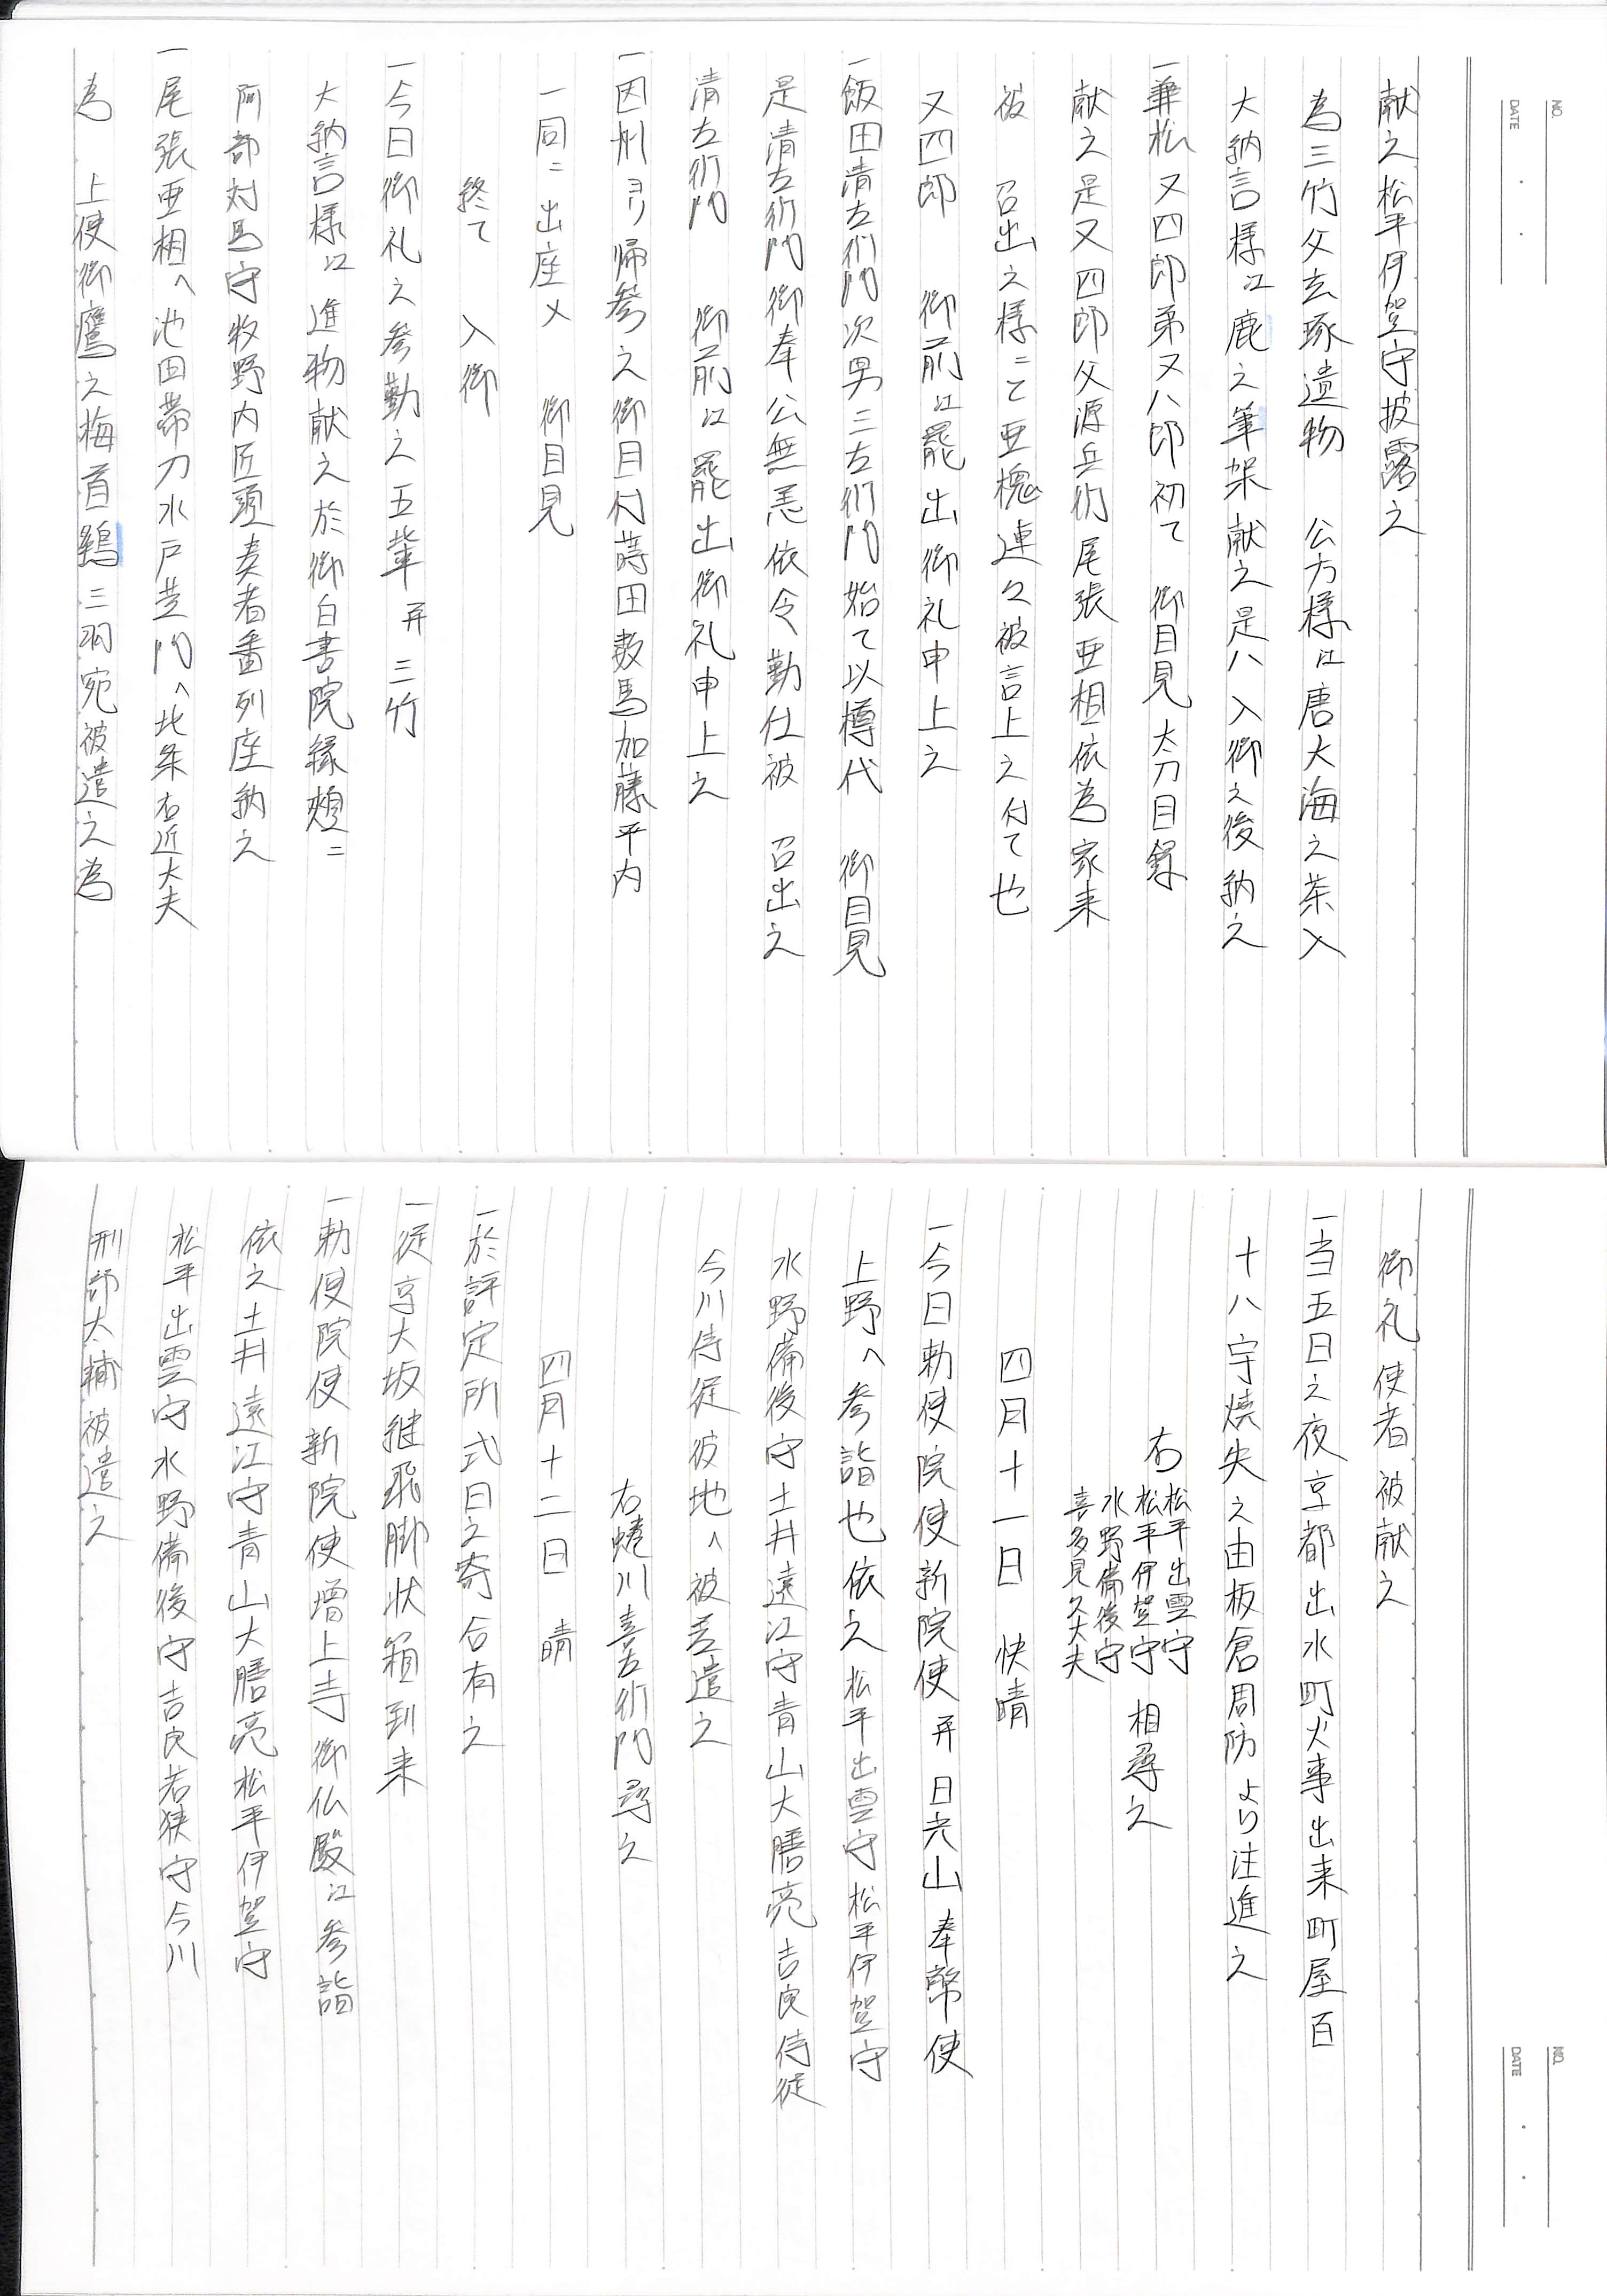 NO.
DATE
献之松平伊賀守披露之
為三竹父玄琢遺物　公方様江唐大海之茶入
大納言様江鹿之筆架献之是ハ入御之後納之
一兼松又四郎弟又八郎初て　御目見太刀目録
献之是又四郎父源兵衛尾張亜相依為家来
被　召出之様ニと亜槐連々被言上之付て也
又四郎　御前江罷出御礼申上之
一飯田清左衛門次男三左衛門始て以樽代　御目見
是清左衛門御奉公無恙依令勤仕被　召出之
清左衛門　御前江罷出御礼申上之
一因州ヨリ帰参之御目付蒔田数馬加藤平内
一同ニ出座〆　御目見
終て　入御
一今日御礼之参勤之五輩并三竹
大納言様江進物献之於御白書院縁頬ニ
阿部対馬守牧野内匠頭奏者番列座納之
一尾張亜相へ池田帯刀水戸黄門へ北条右近大夫
為　上使御鷹之梅首鶏三羽宛被遣之為
NO.
DATE
御礼使者被献之
一当五日之夜京都出水町火事出来町屋百
十八宇焼失之由板倉周防より注進之
右松平出雲守
松平伊賀守
水野備後守
喜多見久大夫
相尋之
四月十一日　快晴
一今日勅使院使新院使并日光山奉幣使
上野へ参詣也依之松平出雲守松平伊賀守
水野備後守土井遠江守青山大膳亮吉良侍従
今川侍従彼地へ被差遣之
右蜷川喜左衛門尋之
四月十二日　晴
一於評定所式日之寄合有之
一従京大坂継飛脚状箱到来
一勅使院使新院使増上寺御仏殿江参詣
依之土井遠江守青山大膳亮松平伊賀守
松平出雲守水野備後守吉良若狭守今川
刑部大輔被遣之